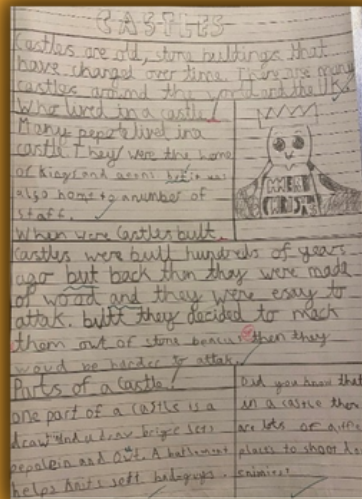 CASTLES
Castles are old, stone buildings that
have changed over time. There are many
castles around the world and the UK.
Who lived in a castle?
Many pepole lived in a
castle. They were the home
of kings and
also home to a number of
staff.
MERRY
CHRISTMAS
When were Castles built.
Castles were built hundreds of years
ago but back then they were made
of wood and they were esay to
attak. butt they decided to mack
them out of stone then they
woud be harder to attak.
Parts of a Castle!
one part of a castle is a
draw brigde lets
pepole in and out. A batlement
helps
Did you know that
in a castle ther
are lots of diffe
places to shoot
enimies!